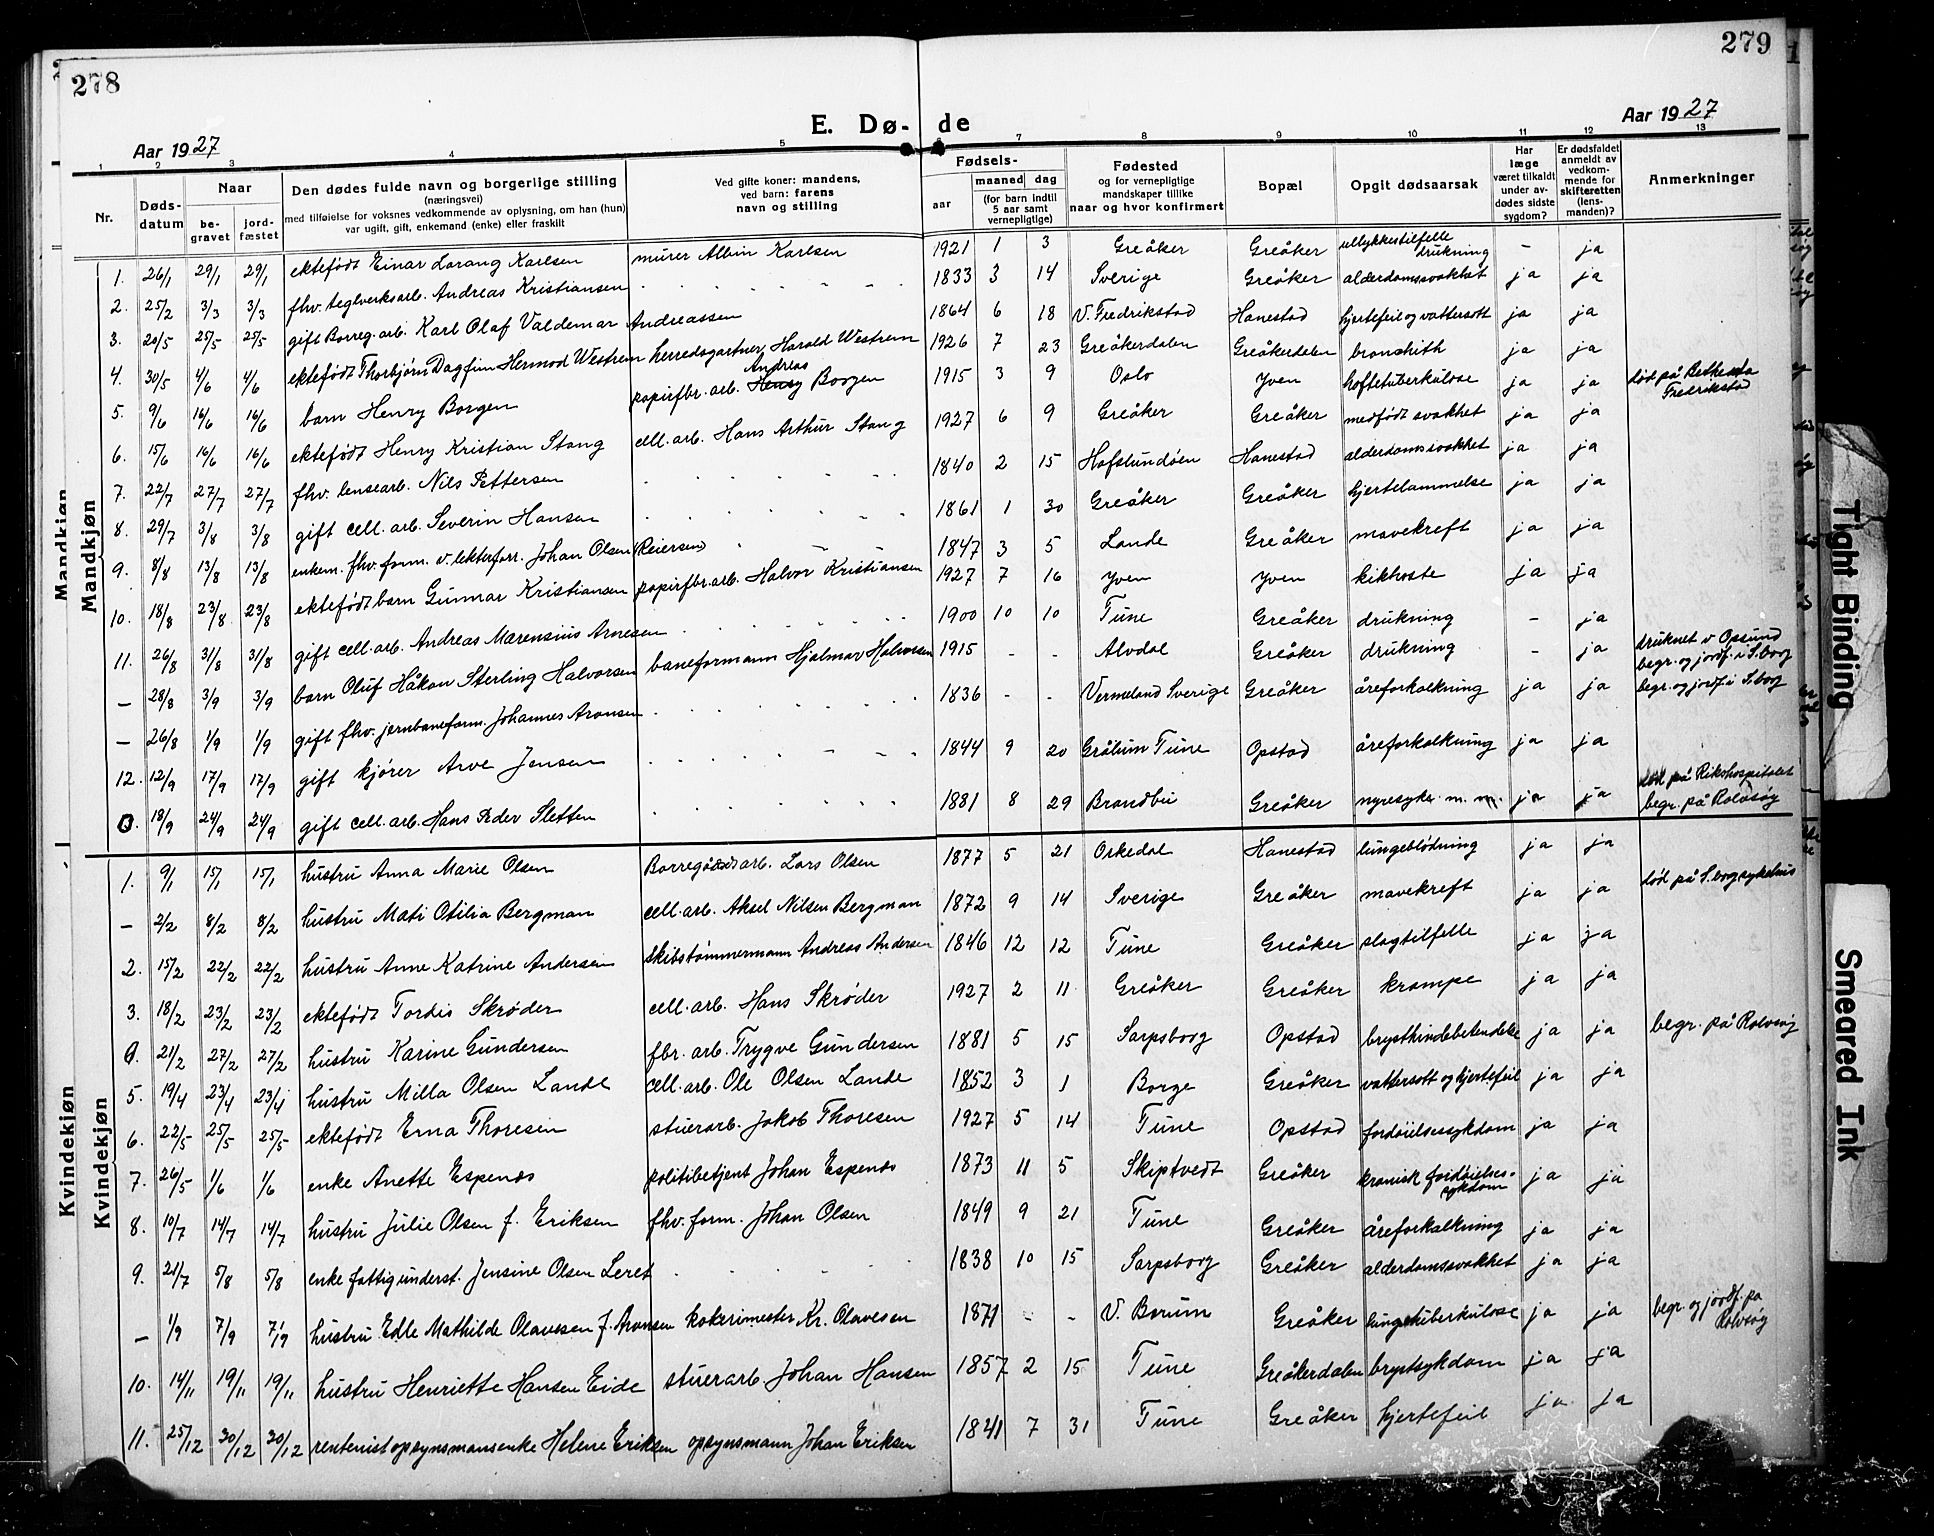 278
279
E. Dø- de
Aar 1927
Aar 1927
1 2 3 4 5 6 7 8 9 10 11 12 13
Nr. Døds-datum Naar be-gravet jord-fæstet Den dødes fulde navn og borgerlige stilling (næringsvei) med tilføielse for voksnes vedkommende av oplysning, om han (hun) var ugift, gift, enkemand (enke) eller fraskilt Ved gifte koner: mandens, ved barn: farens navn og stilling Fødsels- aar maaned dag (for barn indtil 5 aar samt vernepligtige) Fødested og for vernepligtige mandskaper tillike naar og hvor konfirmert Bopæl Opgit dødsaarsak Har læge været tilkaldt under av-dødes sidste sygdom? Er dødsfaldet anmeldt av vedkom-mende for skifteretten (lens-manden)? Anmerkninger
Mandkjøn
Mandkjøn
1. 26/1 29/1 29/1 ektefødt Einar Lorang Karlsen murer Albin Karlsen 1921 1 3 Greåker Greåker ullykkestilfelle drukning - ja
2. 25/2 3/3 3/3 fhv. teglverksarb. Andreas Kristiansen 1833 3 14 Sverige Greåker alderdomssvakhet ja ja
3. 20/5 25/5 25/5 gift Borreg. arb. Karl Olaf Valdemar Andreassen 1864 6 18 V. Fredrikstad Hanestad hjertefeil og vattersott ja ja
4. 30/5 4/6 4/6 ektefødt Thorbjørn Dagfinn Hermod Westrem herredsgartner Harald Westrem 1926 7 23 Greåkerdalen Greåkerdalen bronchith ja ja
5. 9/6 16/6 16/6 barn Henry Borgen papirfbr. arb. Henry Andreas Borgen 1915 3 9 Oslo Yven hoftetuberkulose ja ja død på Bethesda Fredrikstad
6. 15/6 16/6 16/6 ektefødt Henry Kristian Stang cell. arb. Hans Arthur Stang 1927 6 9 Greåker Greåker medfødt svakhet ja ja
7. 22/7 27/7 27/7 fhv. lensearb. Nils Pettersen 1840 2 15 Hafslundøen Hanestad alderdomssvakhet ja ja
8. 29/7 3/8 3/8 gift cell. arb. Severin Hansen 1861 1 30 Greåker Greåker hjertelammelse ja ja
9. 8/8 13/8 13/8 enkem. fhv. form. v. Johan Olsen (Reiersen) 1847 3 5 Lande Greåker mavekreft ja ja
10. 18/8 23/8 23/8 ektefødt barn Gunnar Kristiansen papirfbr. arb. Halvor Kristiansen 1927 7 16 Yven Yven kikhoste ja ja
11. 26/8 31/8 31/8 gift cell. arb. Andreas Marensius Arnesen 1900 10 10 Tune Greåker drukning - ja
- 28/8 3/9 3/9 barn Oluf Håkon Sterling Halvorsen baneformann Hjalmar Halvorsen 1915 - - Alvdal Greåker drukning - ja druknet v Opsund begr. og jordf. i S.borg
- 26/8 1/9 1/9 gift fhv. jernbaneform. Johannes Aronsen 1836 - - Vermeland Sverige Greåker åreforkalkning ja ja begr. og jordf. i S.borg
12. 12/9 17/9 17/9 gift kjører Arve Jensen 1844 9 20 Grålum Tune Opstad åreforkalkning ja ja
18/9 24/9 24/9 gift cell. arb. Hans Peder Sletten 1881 8 29 Brandbu Greåker nyresyke m. m. ja ja død på Rikshospitalet begr. på Rolvsøy
Kvindekjøn
Kvindekjøn
1. 9/1 15/1 15/1 hustru Anna Marie Olsen Borregårds arb. Lars Olsen 1877 5 21 Orkedal Hanestad lungeblødning ja ja
- 2/2 8/2 8/2 hustru Mati Otilia Bergman cell. arb. Aksel Nilsen Bergman 1872 9 14 Sverige Greåker mavekreft ja ja død på S.borg sykehus
2. 15/2 22/2 22/2 hustru Anne Katrine Andersen skibstømmermann Andreas Andersen 1846 12 12 Tune Greåker slagtilfelle ja ja
3. 18/2 23/2 23/2 ektefødt Tordis Skrøder cell. arb. Hans Skrøder 1927 2 11 Greåker Greåker krampe ja ja
21/2 27/2 27/2 hustru Karine Gundersen fbr. arb. Trygve Gundersen 1881 5 15 Sarpsborg Opstad brysthindebetendelse ja ja begr. på Rolvsøy
5. 19/4 23/4 23/4 hustru Milla Olsen Lande cell. arb. Ole Olsen Lande 1852 3 1 Borge Greåker vattersott og hjertefeil ja ja
6. 22/5 25/5 25/5 ektefødt Erna Thoresen stuerarb. Jakob Thoresen 1927 5 14 Tune Opstad fordøielsessykdom ja ja
7. 26/5 1/6 1/6 enke Anette Espenes politibetjent Johan Espenes 1873 11 5 Skiptvedt Greåker kronisk fordøielses-sykdom ja ja
8. 10/7 14/7 14/7 hustru Julie Olsen f. Eriksen fhv. form. Johan Olsen 1849 9 21 Tune Greåker åreforkalkning ja ja
9. 21/7 5/8 5/8 enke fattigunderst. Jensine Olsen Leret 1838 10 15 Sarpsborg Greåker alderdomssvakhet ja ja
- 1/9 7/9 7/9 hustru Edle Mathilde Olavesen f. Aronsen kokerimester Kr. Olavesen 1871 - - V. Bærum Greåker lungetuberkulose ja ja begr. og jordf. på Rolvsøy
10. 14/11 19/11 19/11 hustru Henriette Hansen Eide stuerarb. Johan Hansen 1857 2 15 Tune Greåkerdalen brystsykdom ja ja
11. 25/12 30/12 30/12 rentenist opsynsmansenke Helene Eriksen opsynsmann Johan Eriksen 1841 7 31 Tune Greåker hjertefeil ja ja
Tight Binding
Smeared Ink